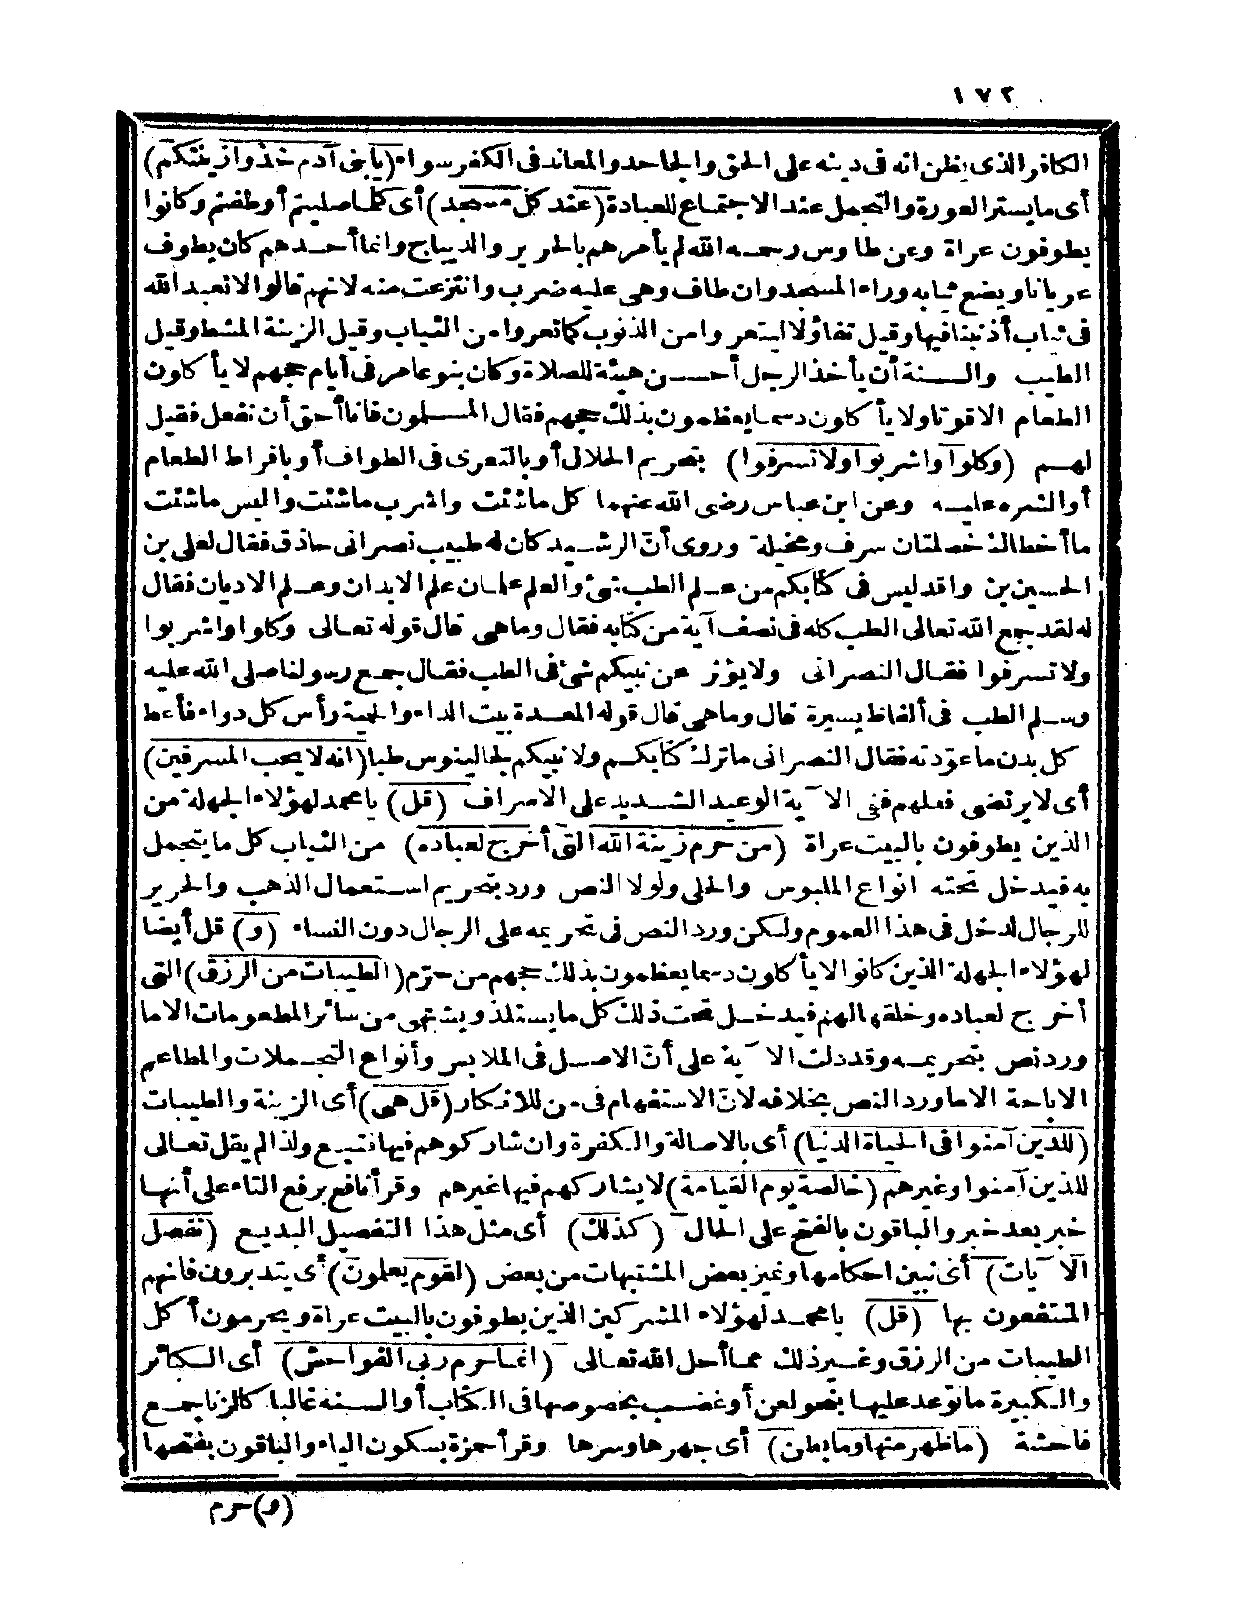 ١٧٢
الكافر الذى يظن انه فى دينه على الحق والجاحد والمعاند فى الكفر سواء (يا بنى آدم خذوا زينتكم)
أى ما يستر العورة والتجمل عند الاجتماع للعبادة (عند كل مسجد) أى كلما صليتم أو طفتم وكانوا
يطوفون عراة وعن طاوس رحمه الله لم يأمرهم بالحرير والديباج وانما أحدهم كان يطوف
عريانا ويضع ثيابه وراء المسجد وان طاف وهى عليه ضرب وانتزعت منه لانهم قالوا لا نعبد الله
فى ثياب أذنبنا فيها وقيل تفاؤلا ليتعروا من الذنوب كما تعروا من الثياب وقيل الزينة المشط وقيل
الطيب والسنة أن يأخذ الرجل أحسن هيئة للصلاة وكان بنو عامر فى أيام حجهم لا يأكلون
الطعام الا قوتا ولا يأكلون دسما يعظمون بذلك حجهم فقال المسلمون فانا أحق أن نفعل فقيل
لهم (وكلوا واشربوا ولا تسرفوا) بتحريم الحلال أو بالتعرى فى الطواف أو بافراط الطعام
أو الشره عليه وعن ابن عباس رضى الله عنهما كل ما شئت واشرب ما شئت والبس ما شئت
ما أخطأتك خصلتان سرف ومخيلة وروى أنّ الرشيد كان له طبيب نصرانى حاذق فقال لعلى بن
الحسين بن واقد ليس فى كتابكم من علم الطب شئ والعلم علمان علم الابدان وعلم الاديان فقال
له لقد جمع الله تعالى الطب كله فى نصف آية من كتابه فقال وما هى قال قوله تعالى وكلوا واشربوا
ولا تسرفوا فقال النصرانى ولا يؤثر عن نبيكم شئ فى الطب فقال جمع رسولنا صلى الله عليه
وسلم الطب فى ألفاظ يسيرة قال وما هى قال قوله المعدة بيت الداء والحمية رأس كل دواء فأعط
كل بدن ما عوّدته فقال النصرانى ما ترك كتابكم ولا نبيكم لجالينوس طبا (انه لا يحب المسرفين)
أى لا يرتضى فعلهم ففى الآية الوعيد الشديد على الاسراف (قل) يا محمد لهؤلاء الجهلة من
الذين يطوفون بالبيت عراة (من حرم زينة الله التى أخرج لعباده) من الثياب كل ما يتجمل
به فيدخل تحته انواع الملبوس والحلى ولولا النص ورد بتحريم استعمال الذهب والحرير
للرجال لدخل فى هذا العموم ولكن ورد النص فى تحريمه على الرجال دون النساء (و) قل أيضا
لهؤلاء الجهلة الذين كانوا لا يأكلون دسما يعظمون بذلك حجهم من حرّم (الطيبات من الرزق) التى
أخرج لعباده وخلقها لهم فيدخل تحت ذلك كل ما يستلذ ويشتهى من سائر المطعومات الا ما
ورد نص بتحريمه وقد دلت الآية على أنّ الاصل فى الملابس وأنواع التجملات والمطاعم
الاباحة الا ما ورد النص بخلافه لانّ الاستفهام فى من للانكار (قل هى) أى الزينة والطيبات
(للذين آمنوا فى الحياة الدنيا) أى بالاصالة والكفرة وان شاركوهم فيها فتبع ولذا لم يقل تعالى
للذين آمنوا وغيرهم (خالصة يوم القيامة) لا يشاركهم فيها غيرهم وقرأ نافع برفع التاء على أنها
خبر بعد خبر والباقون بالفتح على الحال (كذلك) أى مثل هذا التفصيل البديع (نفصل
الآيات) أى نبين احكامها ونميز بعض المشتبهات من بعض (لقوم يعلمون) أى يتدبرون فانهم
المنتفعون بها (قل) يا محمد لهؤلاء المشركين الذين يطوفون بالبيت عراة ويحرمون أكل
الطيبات من الرزق وغير ذلك مما أحل الله تعالى (انما حرم ربى الفواحش) أى الكبائر
والكبيرة ما توعد عليها بنحو لعن أو غضب بخصوصها فى الكتاب أو السنة غالبا كالزنا جمع
فاحشة (ما ظهر منها وما بطن) أى جهرها وسرها وقرأ حمزة بسكون الياء والباقون بفتحها
(و) حرم